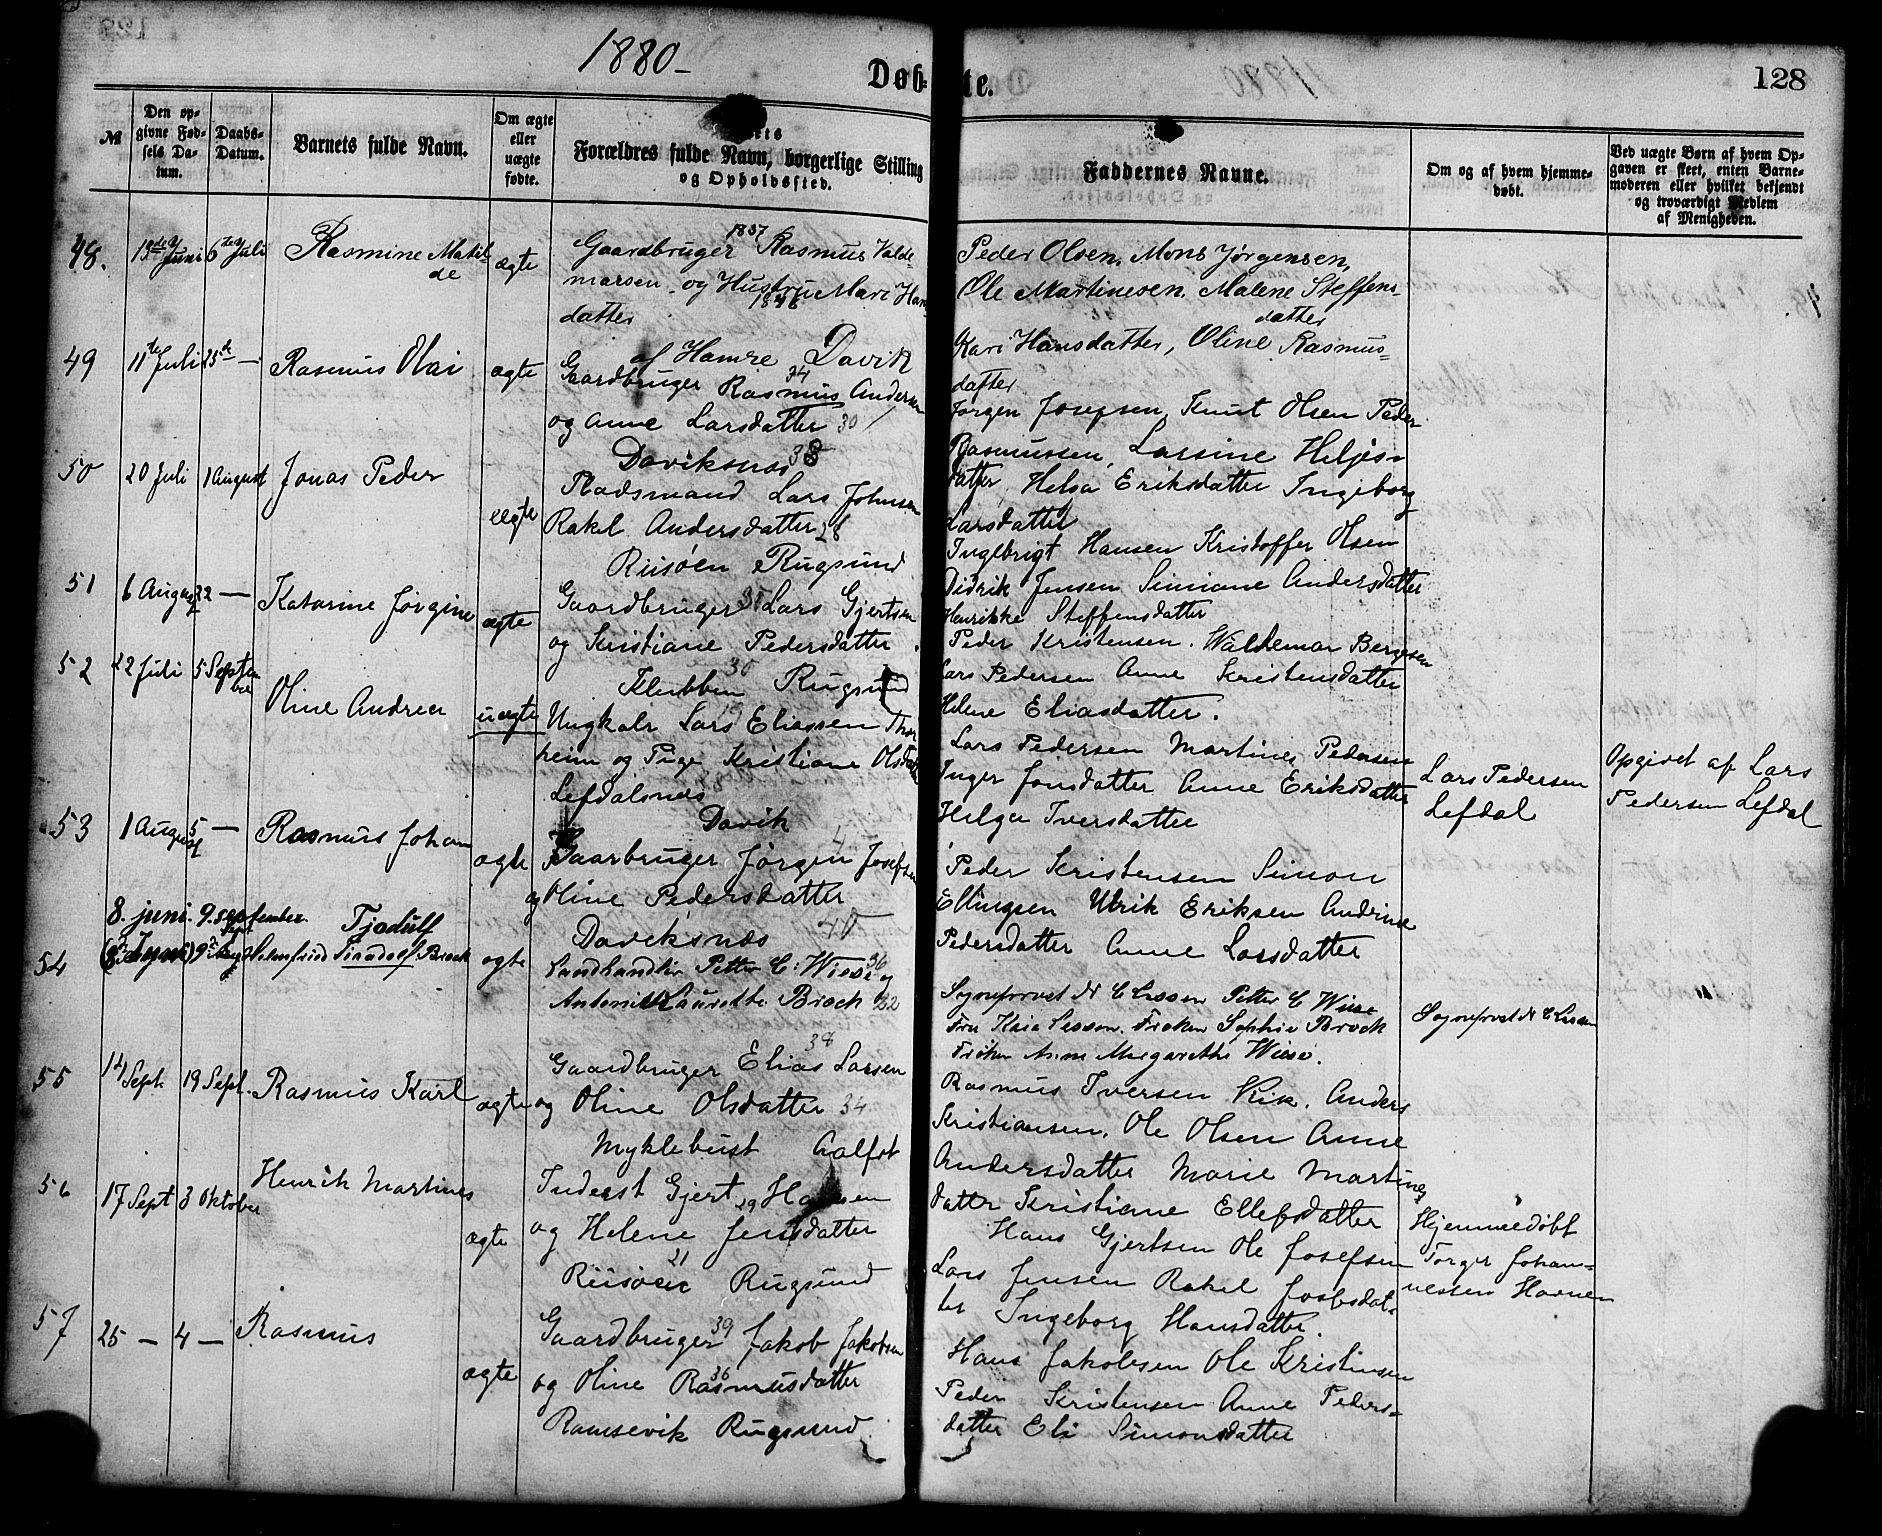 1880
Døbte.
128
№
Den op-
givne Fød-
sels Da-
tum.
Daabs-
Datum.
Barnets fulde Navn.
Om ægte
eller
uægte
fødte.
Forældres fulde Navn, borgerlige Stilling
og Opholdssted.
Faddernes Navne.
Om og af hvem hjemme-
døbt.
Ved uægte Børn af hvem Op-
gaven er skeet, enten Barne-
moderen eller hvilket bekjendt
og troværdigt Medlem
af Menigheden.
48. Juni 6te Juli Rasmine Matil-
de
ægte
1837
Gaardbruger Rasmus Valde-
marsen og Hustru Mari Hans
1846
datter
af Hamre Davik
Peder Olsen, Mons Jørgensen,
Ole Martinesen, Malene Steffens-
datter
Kari Hansdatter, Oline Rasmus-
datter
49 11te Juli 25de — Rasmus Olai ægte
34
Gaardbruger Rasmus Andersen
og Anne Larsdatter 30
Daviksnæs
Jørgen Josefsen, Knut Olsen Peder
Rasmussen, Larsine Heljes-
datter Helga Eriksdatter Ingeborg
Larsdatter
50 20 Juli 1 August Jonas Peder ægte
38
Pladsmand Lars Johnsen
Rakel Andersdatter 28
Riisøen Rugsund
Ingebrigt Hansen Kristoffer Olsen
Didrik Jensen Simiane Andersdatter
Henrikke Steffensdatter
51 6 August 22 — Katarine Jørgine ægte
35
Gaardbruger Lars Gjertsen
og Kristiane Pedersdatter
30
Klubben Rugsund
Peder Kristensen. Waldemar Bergesen
Lars Pedersen Anne Kristensdatter
Helene Eliasdatter.
52 22 Juli 5 September Oline Andrea uægte
Ungkalr Lars Eliassen Thor
heim og Pige Kristiane Olsdatter
Lefdalsnæs
Davik
Lars Pedersen Martines Pedersen
Inger Jonsdatter Anne Eriksdatter
Helga Iversdatter
Lars Pedersen
Lefdal
Opgivet af Lars
Pedersen Lefdal
53 1 August 5 — Rasmus Johan ægte
Gaarbruger Jørgen Josefsen
og Oline Pedersdatter
Daviksnæs 40
Peder Kristensen Simon
Ellingsen Ulrik Eriksen Andrine
Pedersdatter Anne Larsdatter
8. juni. 9. september Tjodulf
54 Holmfried Tjodolf Brock ægte
Landhandler Petter C. Wiese og 36
Antonitte Laurette Brock 32
Sogneprest N C Lassen Petter C Wiese
Fru Kaia Lassen. Frøken Sophie Brock
Frøken Anne Margarethe Wiese.
Sogneprest N C Lassen
55 14 Sept. 19 Sept. Rasmus Karl ægte
38
Gaardbruger Elias Larsen
og Oline Olsdatter 34
Myklebust Aalfot
Rasmus Iversen Vik. Anders
Kristiansen, Ole Olsen Anne
Andersdatter Marie Martines
datter Kristiane Ellefsdatter
56 17 Sept 3 Oktober Henrik Martines ægte
Inderst Gjert Hansen
29
og Helene Jensdatter
21
Riisøen Rugsund
Hans Gjertsen Ole Josefsen
Lars Jensen Rakel Josefsdat-
ter Ingeborg Hansdatter.
Hjemmedøbt
Torger Johan-
nessen Havnen
57 25 — 4 — Rasmus ægte
39
Gaardbruger Jakob Jakobsen
36
og Oline Rasmusdatter
Ramsevik Rugsund
Hans Jakobsen Ole Kristensen
Peder Kristensen Anne Peders-
datter Eli Simonsdatter